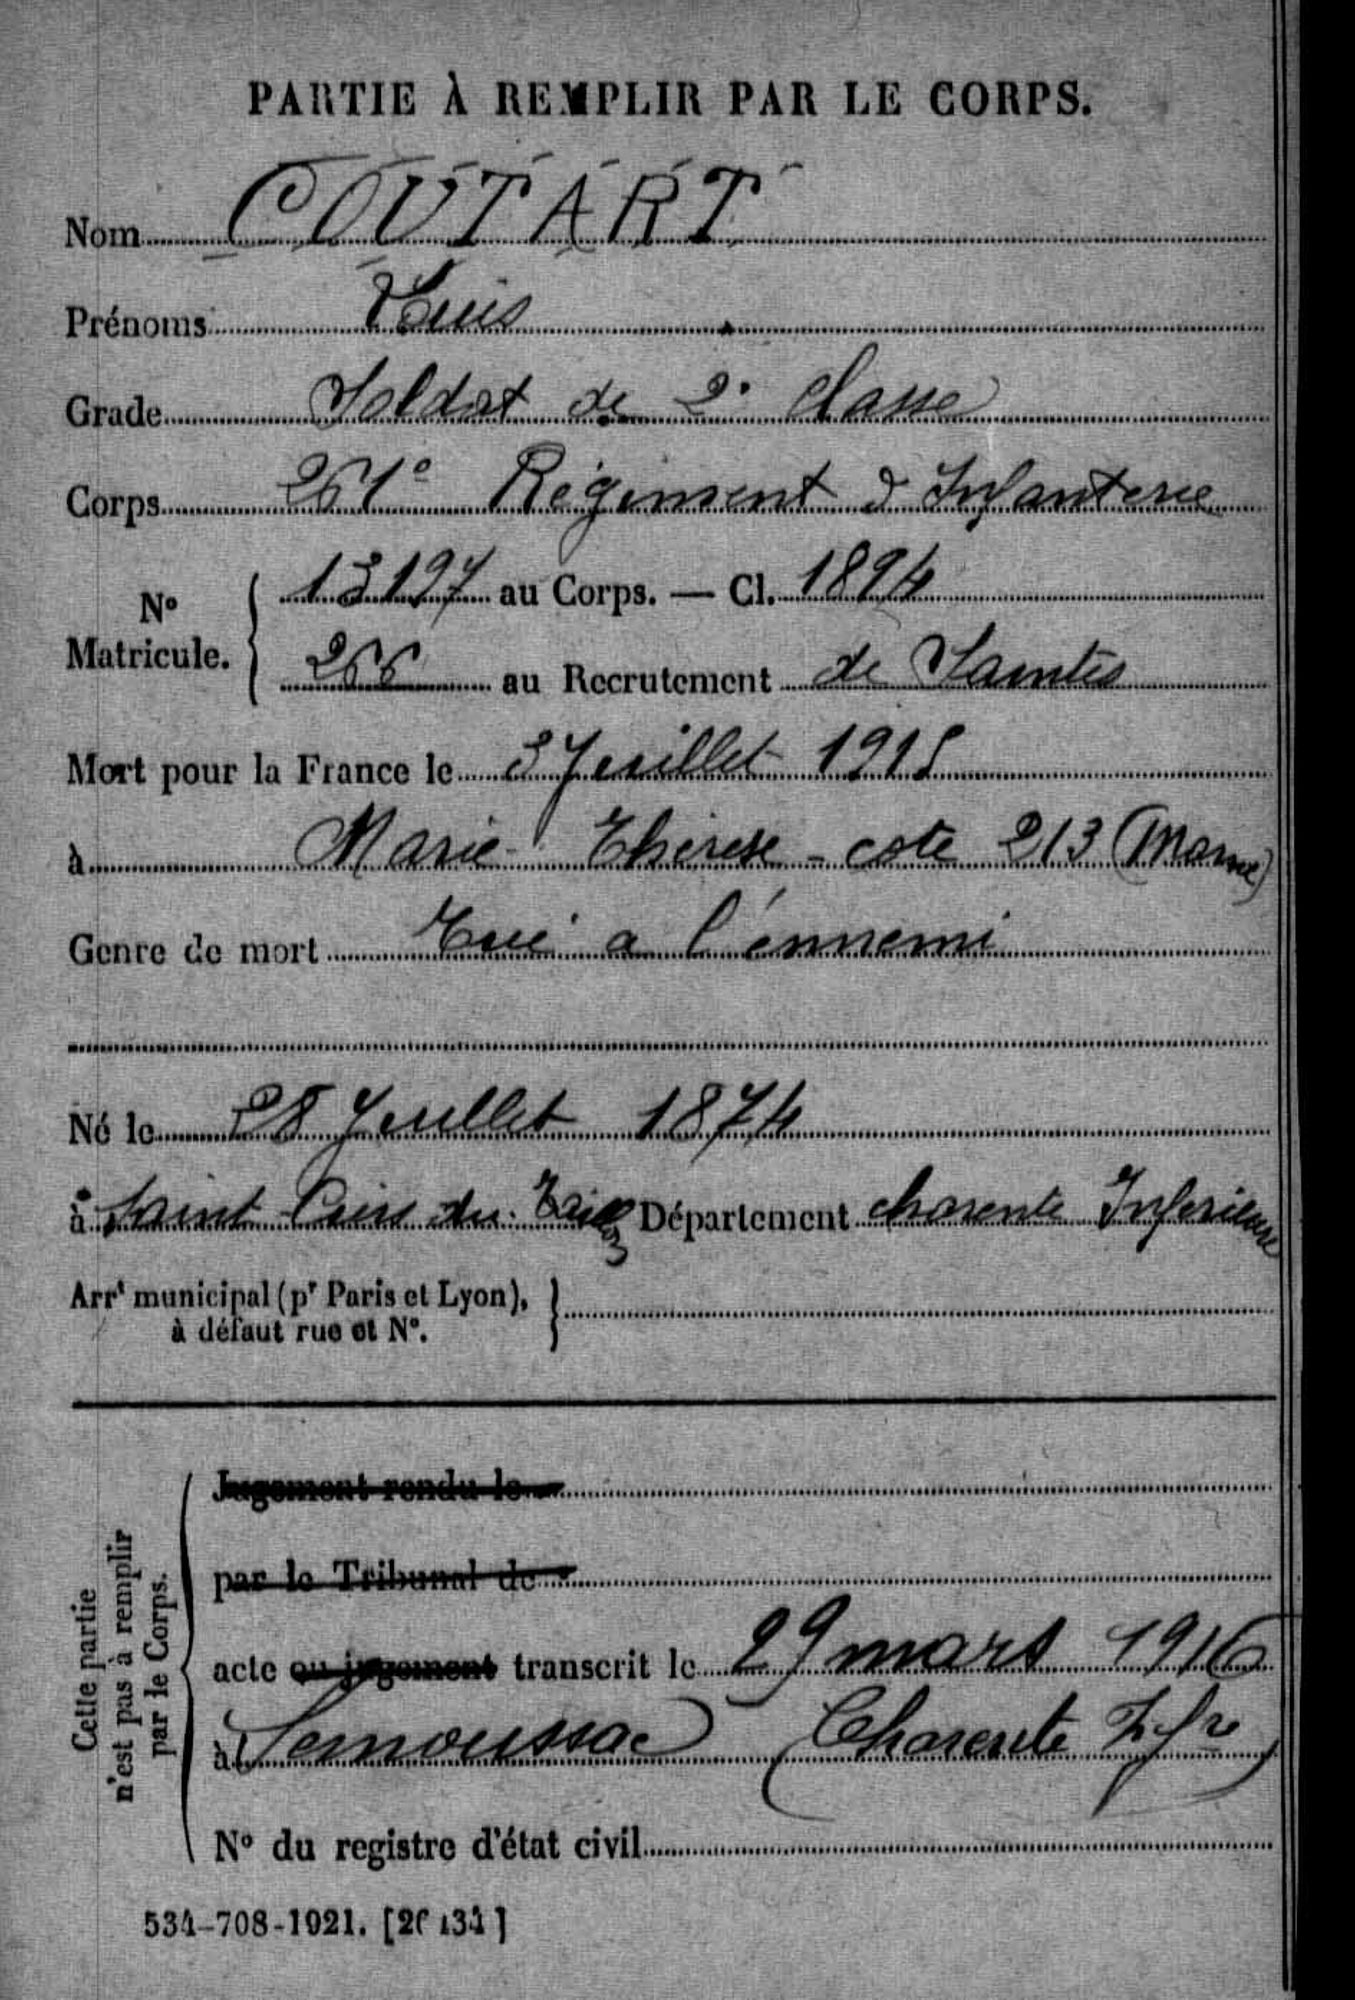 PARTIE À REMPLIR PAR LE CORPS.
Nom COUTART
Prénoms Louis
Grade Soldat de 2e classe
Corps 261e Régiment d Infanterie
No Matricule. 13197 au Corps. — Cl. 1894
266 au Recrutement de Saintes
Mort pour la France le 3 Juillet 1915
à Marie-Thérèse - cote 213 (Marne)
Genre de mort Tué a l'énnemi
Né le 28 Juillet 1874
à Saint Ciers du Taillon Département Charente Inferieure
Arrt municipal (pr Paris et Lyon),
à défaut rue et N°.
Cette partie
n'est pas à remplir
par le Corps.
Jugement rendu le
par le Tribunal de
acte ou jugement transcrit le 29 mars 1916
à Semoussac (Charente Ifre)
N° du registre d'état civil
534-708-1921. [26434]